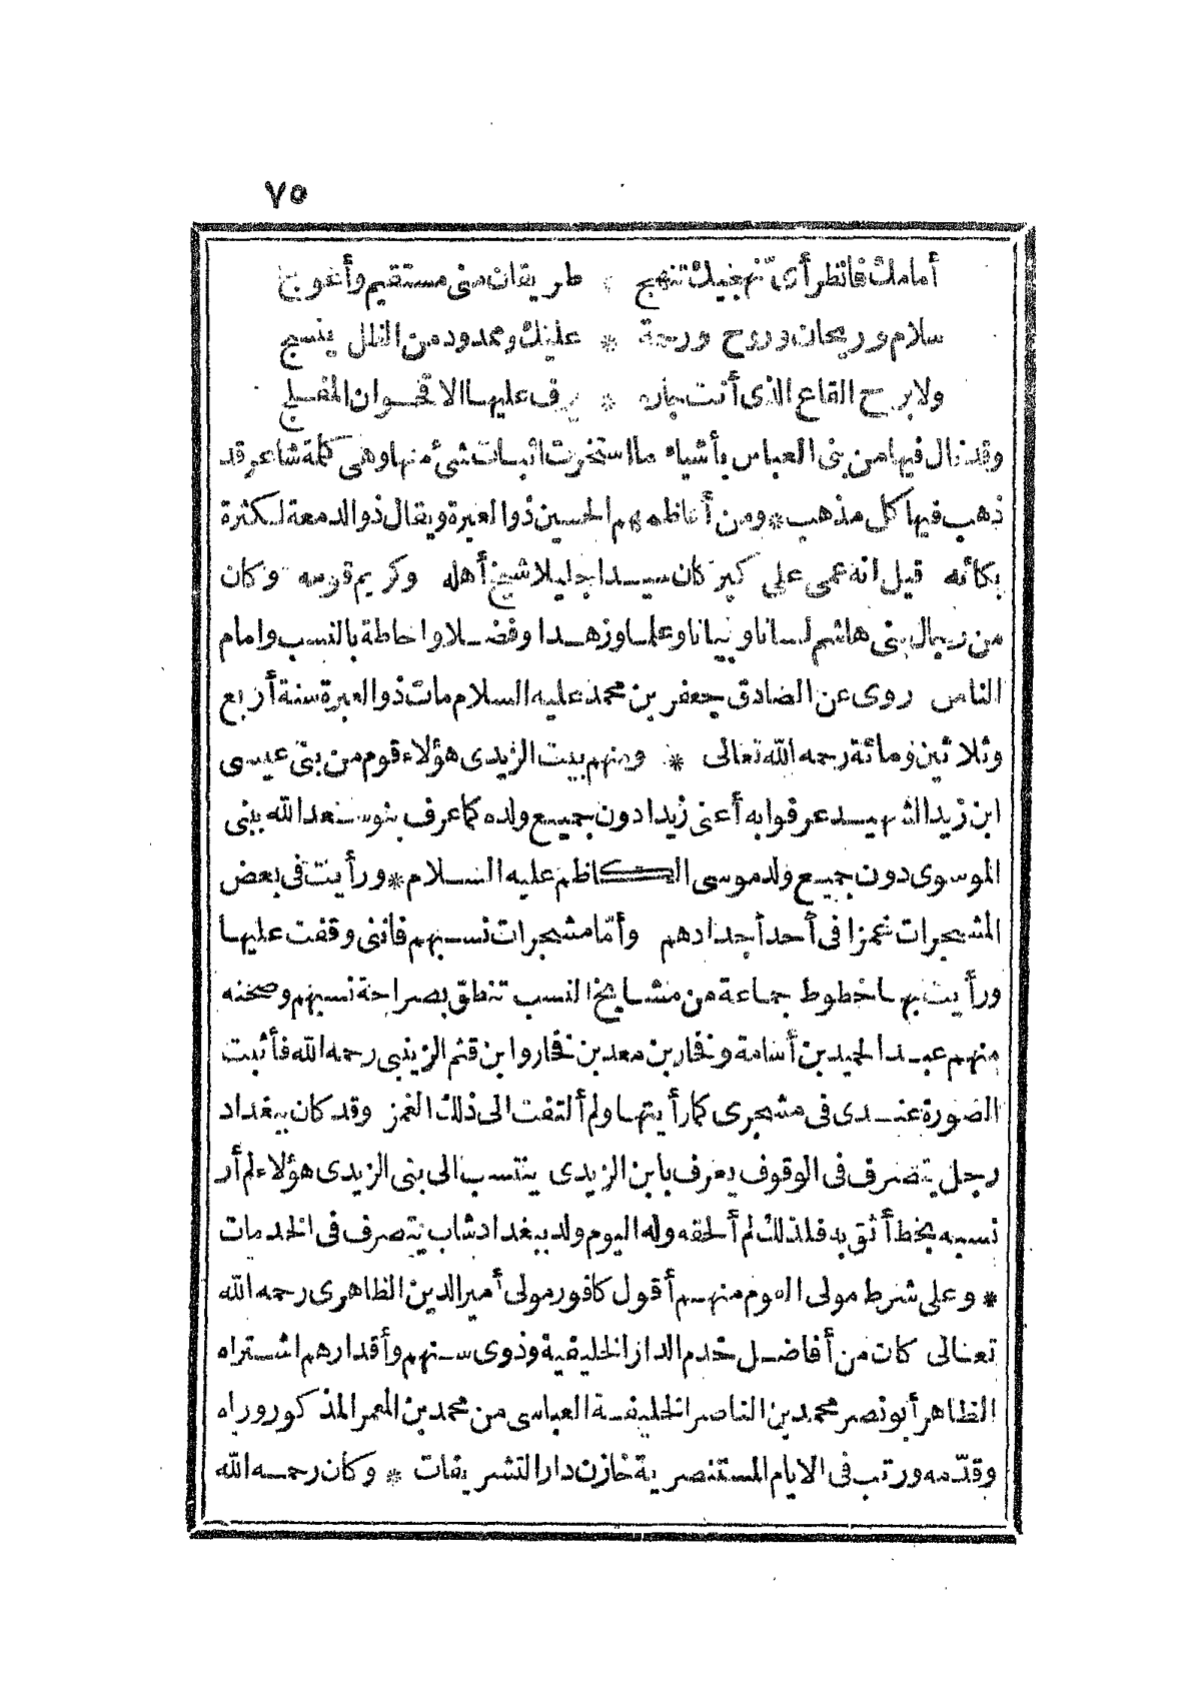 ٧٥
أمامك فانظر أى نهجيك تنهج * طريقان منى مستقيم وأعوج
سلام وريحان وروح ورحمة * عليك وممدود من الظل ينسج
ولا برح القاع الذى أنت جاره * يرف عليها الاقحوان المفلج
وقد نال فيها من بنى العباس بأشياء ما استخرت اثبات شئ منها وهى كلمة شاعر قد
ذهب فيها كل مذهب * ومن أعاظمهم الحسين ذو العبرة ويقال ذو الدمعة لكثرة
بكائه قيل انه عمى على كبر كان سيدا جليلا شيخ أهله وكريم قومه وكان
من رجال بنى هاشم لسانا وبيانا وعلما وزهدا وفضلا واحاطة بالنسب وامام
الناس روى عن الصادق جعفر بن محمد عليه السلام مات ذو العبرة سنة أربع
وثلاثين ومائة رحمه الله تعالى * ومنهم بيت الزيدى هؤلاء قوم من بنى عيسى
ابن زيد الشهيد عرفوا به أعنى زيدا دون جميع ولده كما عرف بنو سعد الله ببنى
الموسوى دون جميع ولد موسى الكاظم عليه السلام * ورأيت فى بعض
المشجرات غمزا فى أحد أجدادهم وأما مشجرات نسبهم فاننى وقفت عليها
ورأيت بها خطوط جماعة من مشايخ النسب تنطق بصراحة نسبهم وصحته
منهم عبد الحميد بن أسامة وفخار بن معد بن فخار وابن قثم الزينبى رحمه الله فأثبت
الصورة عندى فى مشجرى كما رأيتها ولم ألتفت الى ذلك الغمز وقد كان ببغداد
رجل يتصرف فى الوقوف يعرف بابن الزيدى ينتسب الى بنى الزيدى هؤلاء لم أر
نسبه بخط أثق به فلذلك لم ألحقه وله اليوم ولد ببغداد شاب يتصرف فى الخدمات
* وعلى شرط مولى القوم منهم أقول كافور مولى أمير الدين الظاهرى رحمه الله
تعالى كان من أفاضل خدم الدار الخليفية وذوى سنهم وأقدارهم اشتراه
الظاهر أبو نصر محمد بن الناصر الخليفة العباسى من محمد بن المعمر المذكور ورباه
وقدّمه ورتب فى الايام المستنصرية خازن دار التشريفات * وكان رحمه الله